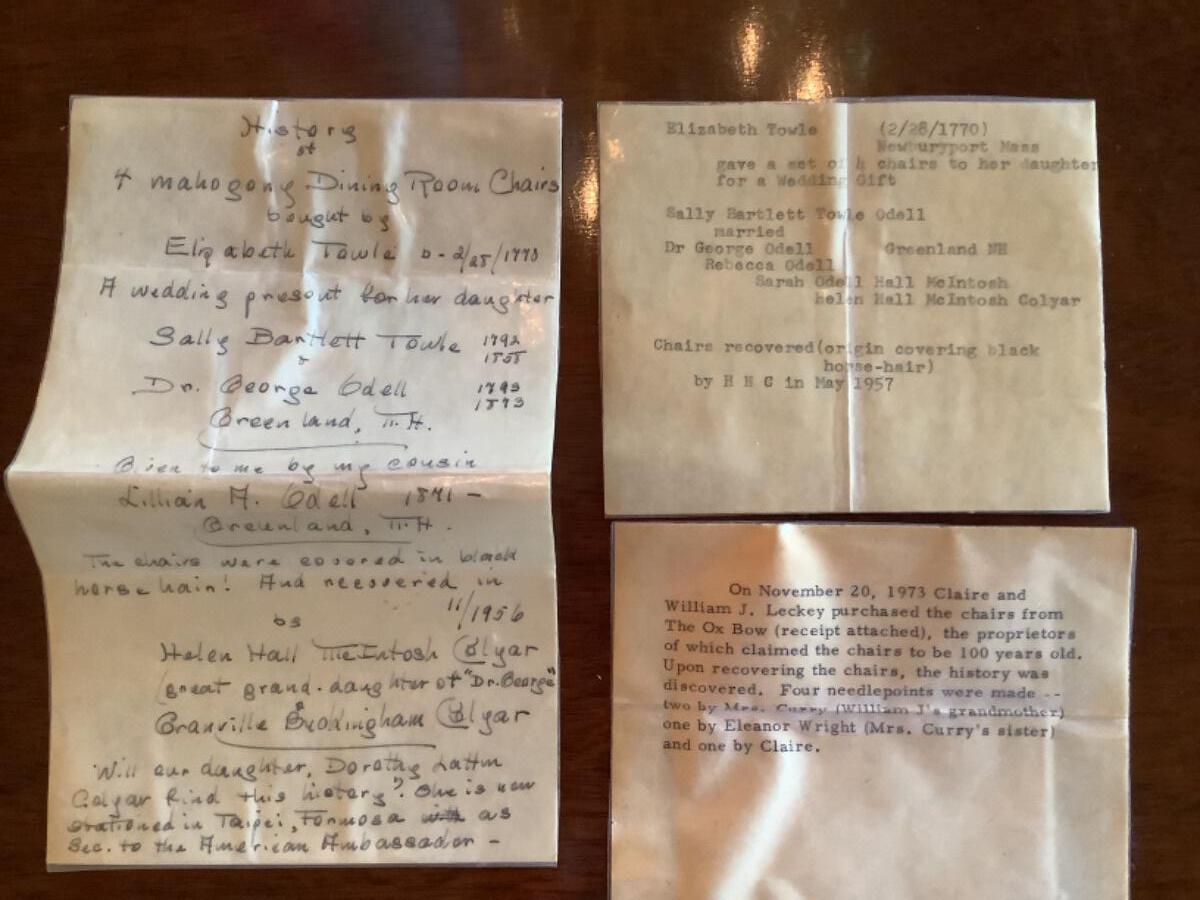 History
of
4 mahogony Dining Room Chairs
bought by
Elizabeth Towle b - 2/28/1770
A wedding present for her daughter
Sally Bartlett Towle 1792
1855
&
Dr. George Odell 1793
1873
Greenland, N.H.
Given to me by my cousin
Lillian A. Odell 1871 -
Greenland, N.H.
The chairs were covered in black
horse hain! And recovered in
11/1956
by
Helen Hall McIntosh Colyar
(great grand-daughter of "Dr. George"
&
Granville Beddingham Colyar
Will our daughter, Dorothy
Colyar find this history? She is now
stationed in Taipei, Formosa as
Sec. to the American Ambassador -
Elizabeth Towle (2/28/1770)
Newburyport Mass
gave a set of 4 chairs to her daughter
for a Wedding Gift
Sally Bartlett Towle Odell
married
Dr George Odell Greenland NH
Rebecca Odell
Sarah Odell Hall McIntosh
helen Hall McIntosh Colyar
Chairs recovered(origin covering black
horse-hair)
by H H C in May 1957
On November 20, 1973 Claire and
William J. Leckey purchased the chairs from
The Ox Bow (receipt attached), the proprietors
of which claimed the chairs to be 100 years old.
Upon recovering the chairs, the history was
discovered. Four needlepoints were made --
two by Mrs. Curry (William J's grandmother)
one by Eleanor Wright (Mrs. Curry's sister)
and one by Claire.